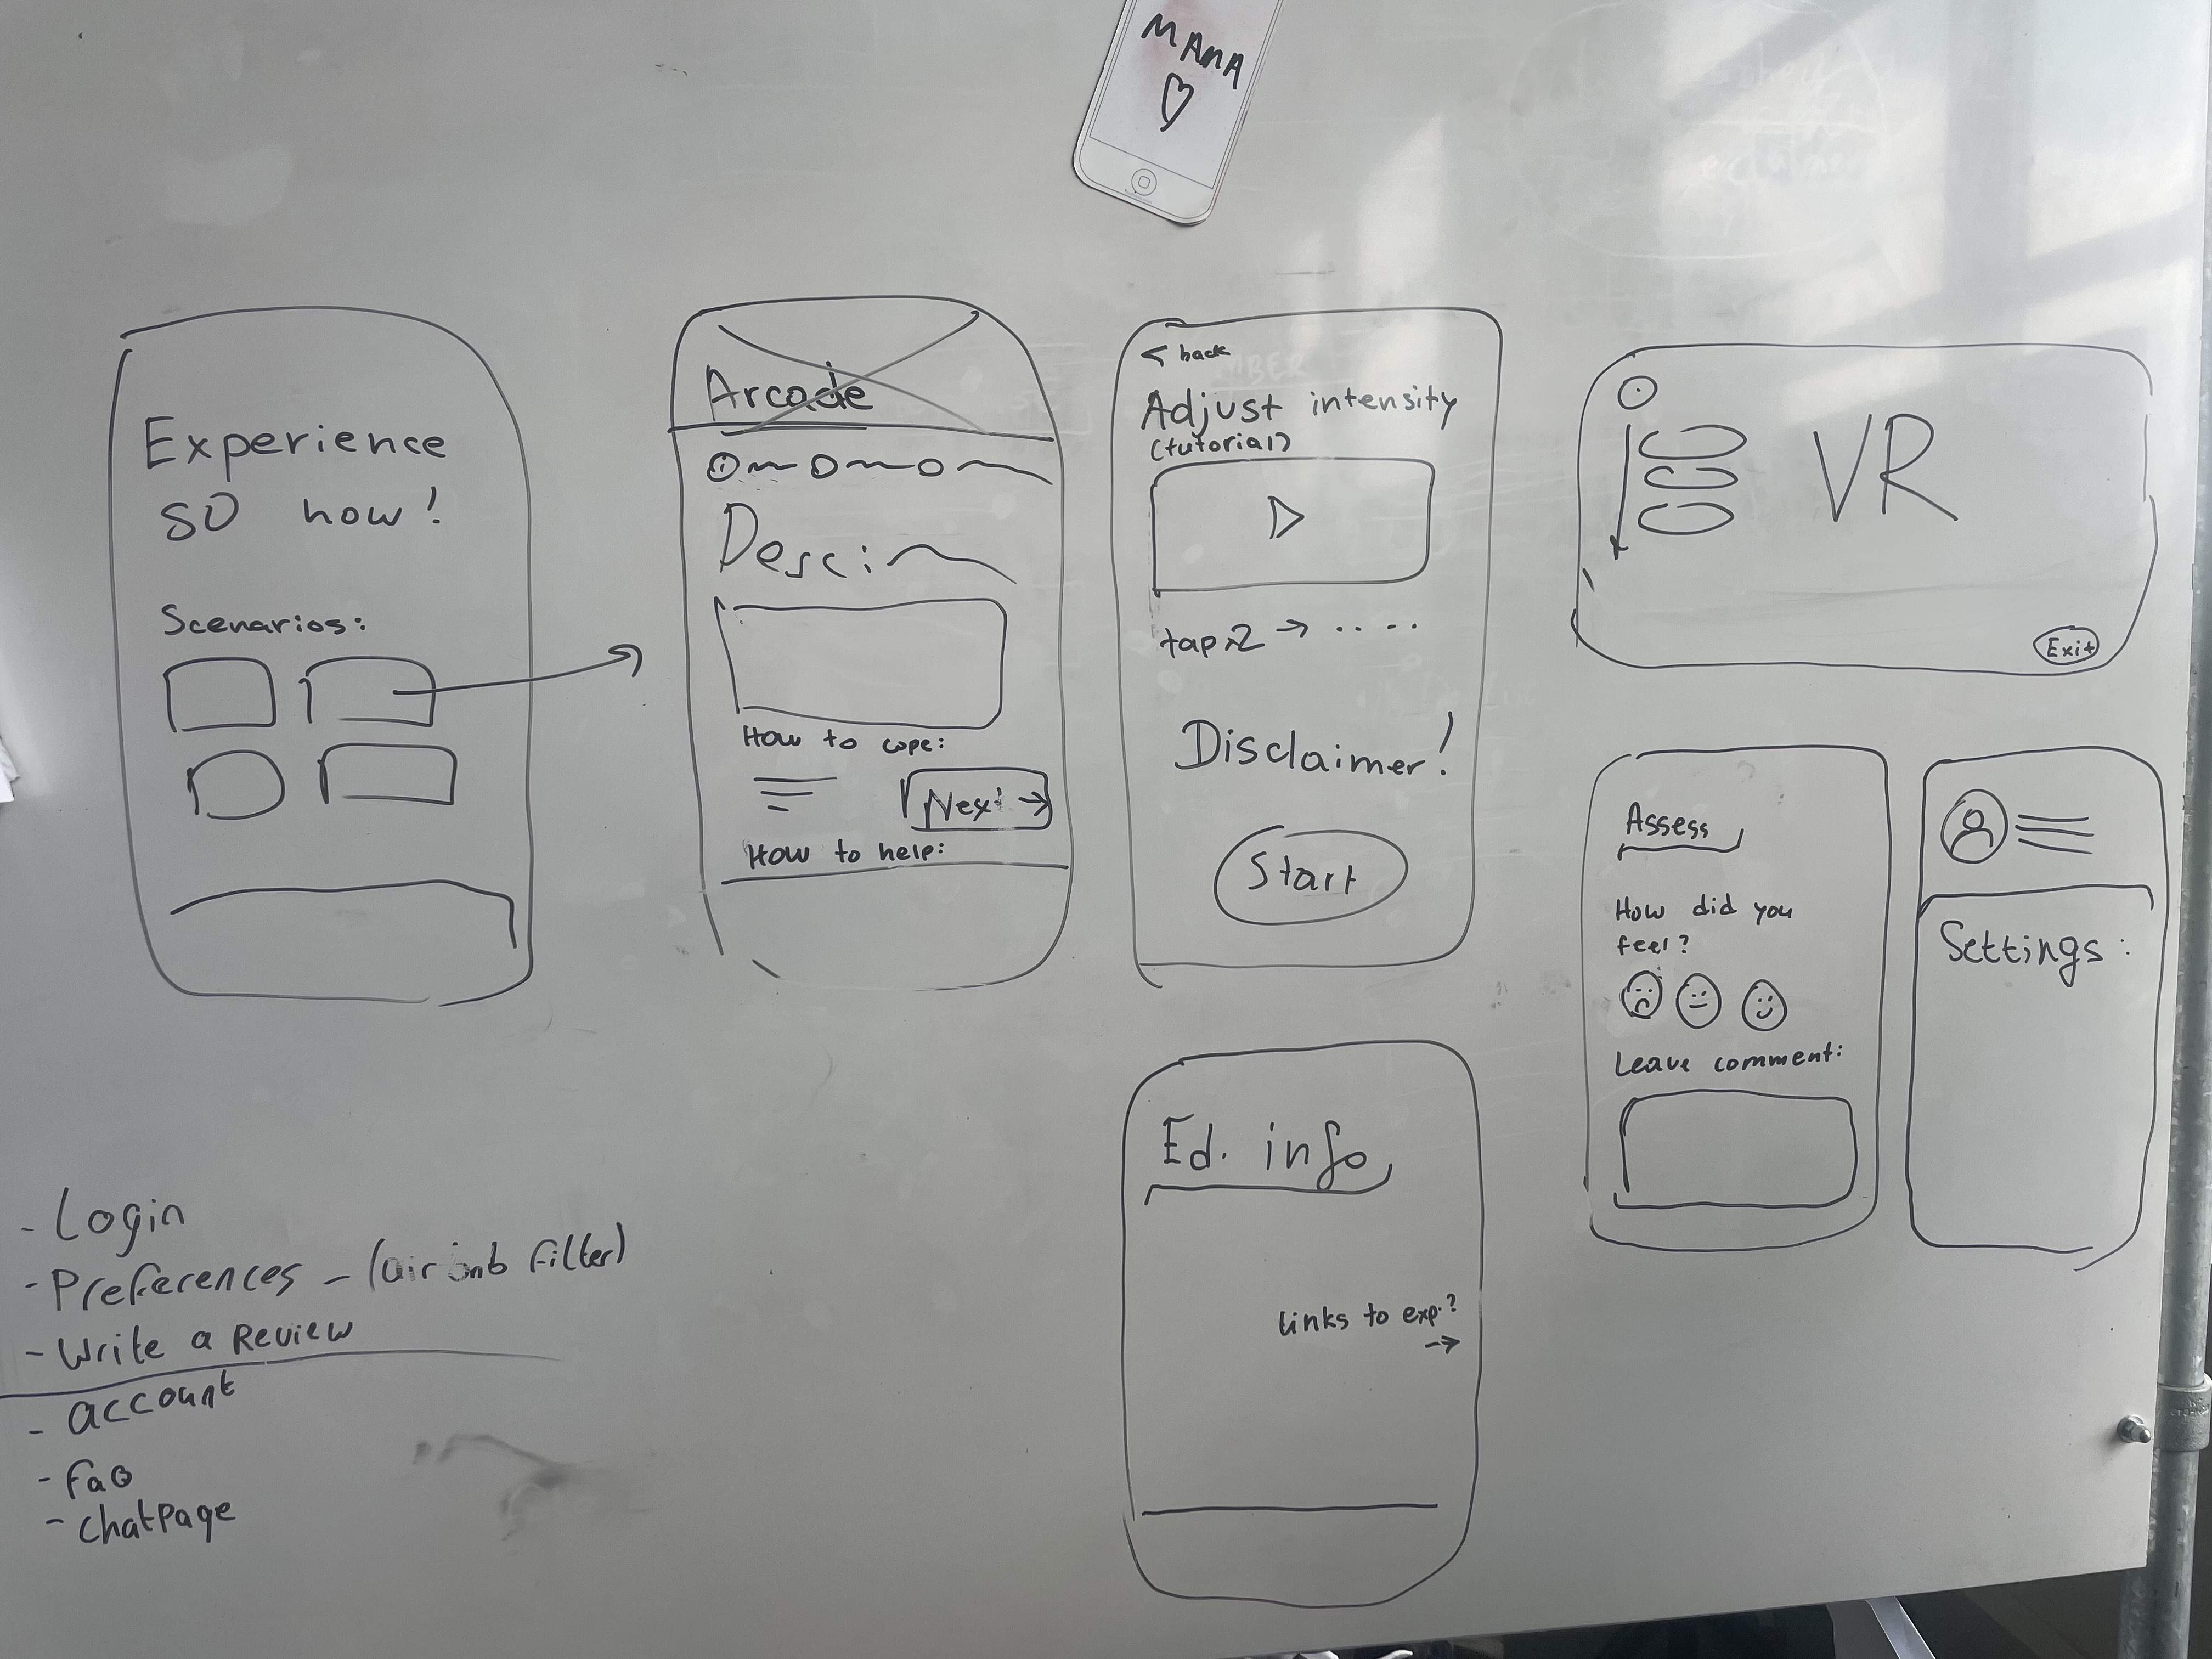 MAMA
Experience
SO now!
Scenarios:
Arcade
Desc:
How to cope:
Next →
How to help:
< back
Adjust intensity
(tutorial)
tap x2 → .. - .
Disclaimer!
Start
VR
Exit
Assess
How did you
feel?
Leave comment:
Settings:
Ed. info
Links to exp.?
→
- Login
- Preferences - (airbnb filter)
- Write a Review
- account
- FaQ
- chatPage